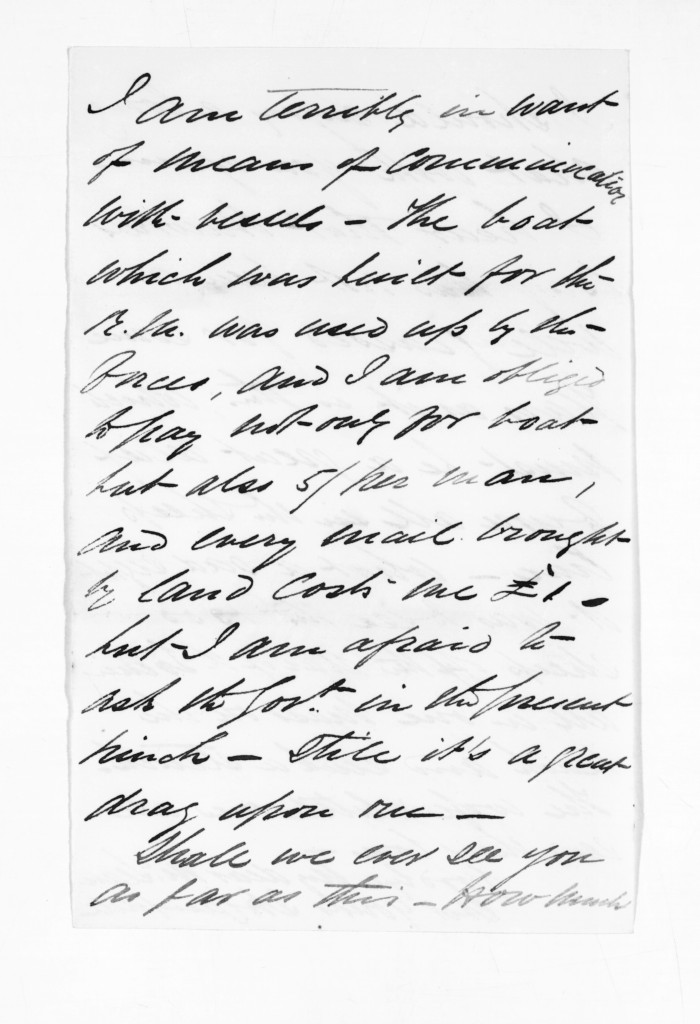 I am terribly in want
of means of communication
with vessels – The boat
which was built for the
R.M. was used up by the
Forces, and I am obliged
to pay not only for boat
but also 5/ per man,
and every mail brought
by land costs me £1 –
but I am afraid to
ask the Govt. in the present
pinch – Still it's a great
drag upon me –
Shall we ever see you
as far as this – How much